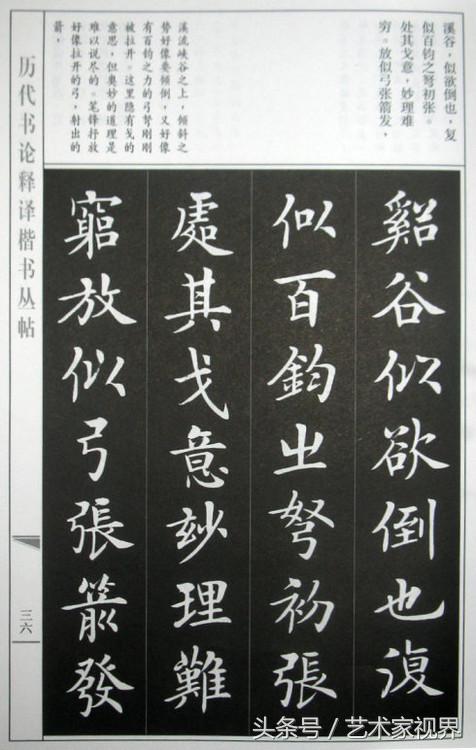 溪谷，似欲倒也，复
似百钧之弩初张。
处其戈意，妙理难
穷。放似弓张箭发，
溪流峡谷之上，倾斜之
势好像要倾倒，又好像
有百钧之力的弓弩刚刚
被拉开。这里隐有戈的
意思，但奥妙的道理是
难以说尽的。笔锋抒放
好像拉开的弓，射出的
箭，
谿谷似欲倒也復
似百鈞之弩初張
處其戈意妙理難
窮放似弓張箭發
历代书论释译楷书丛帖
三六
头条号 / 艺术家视界